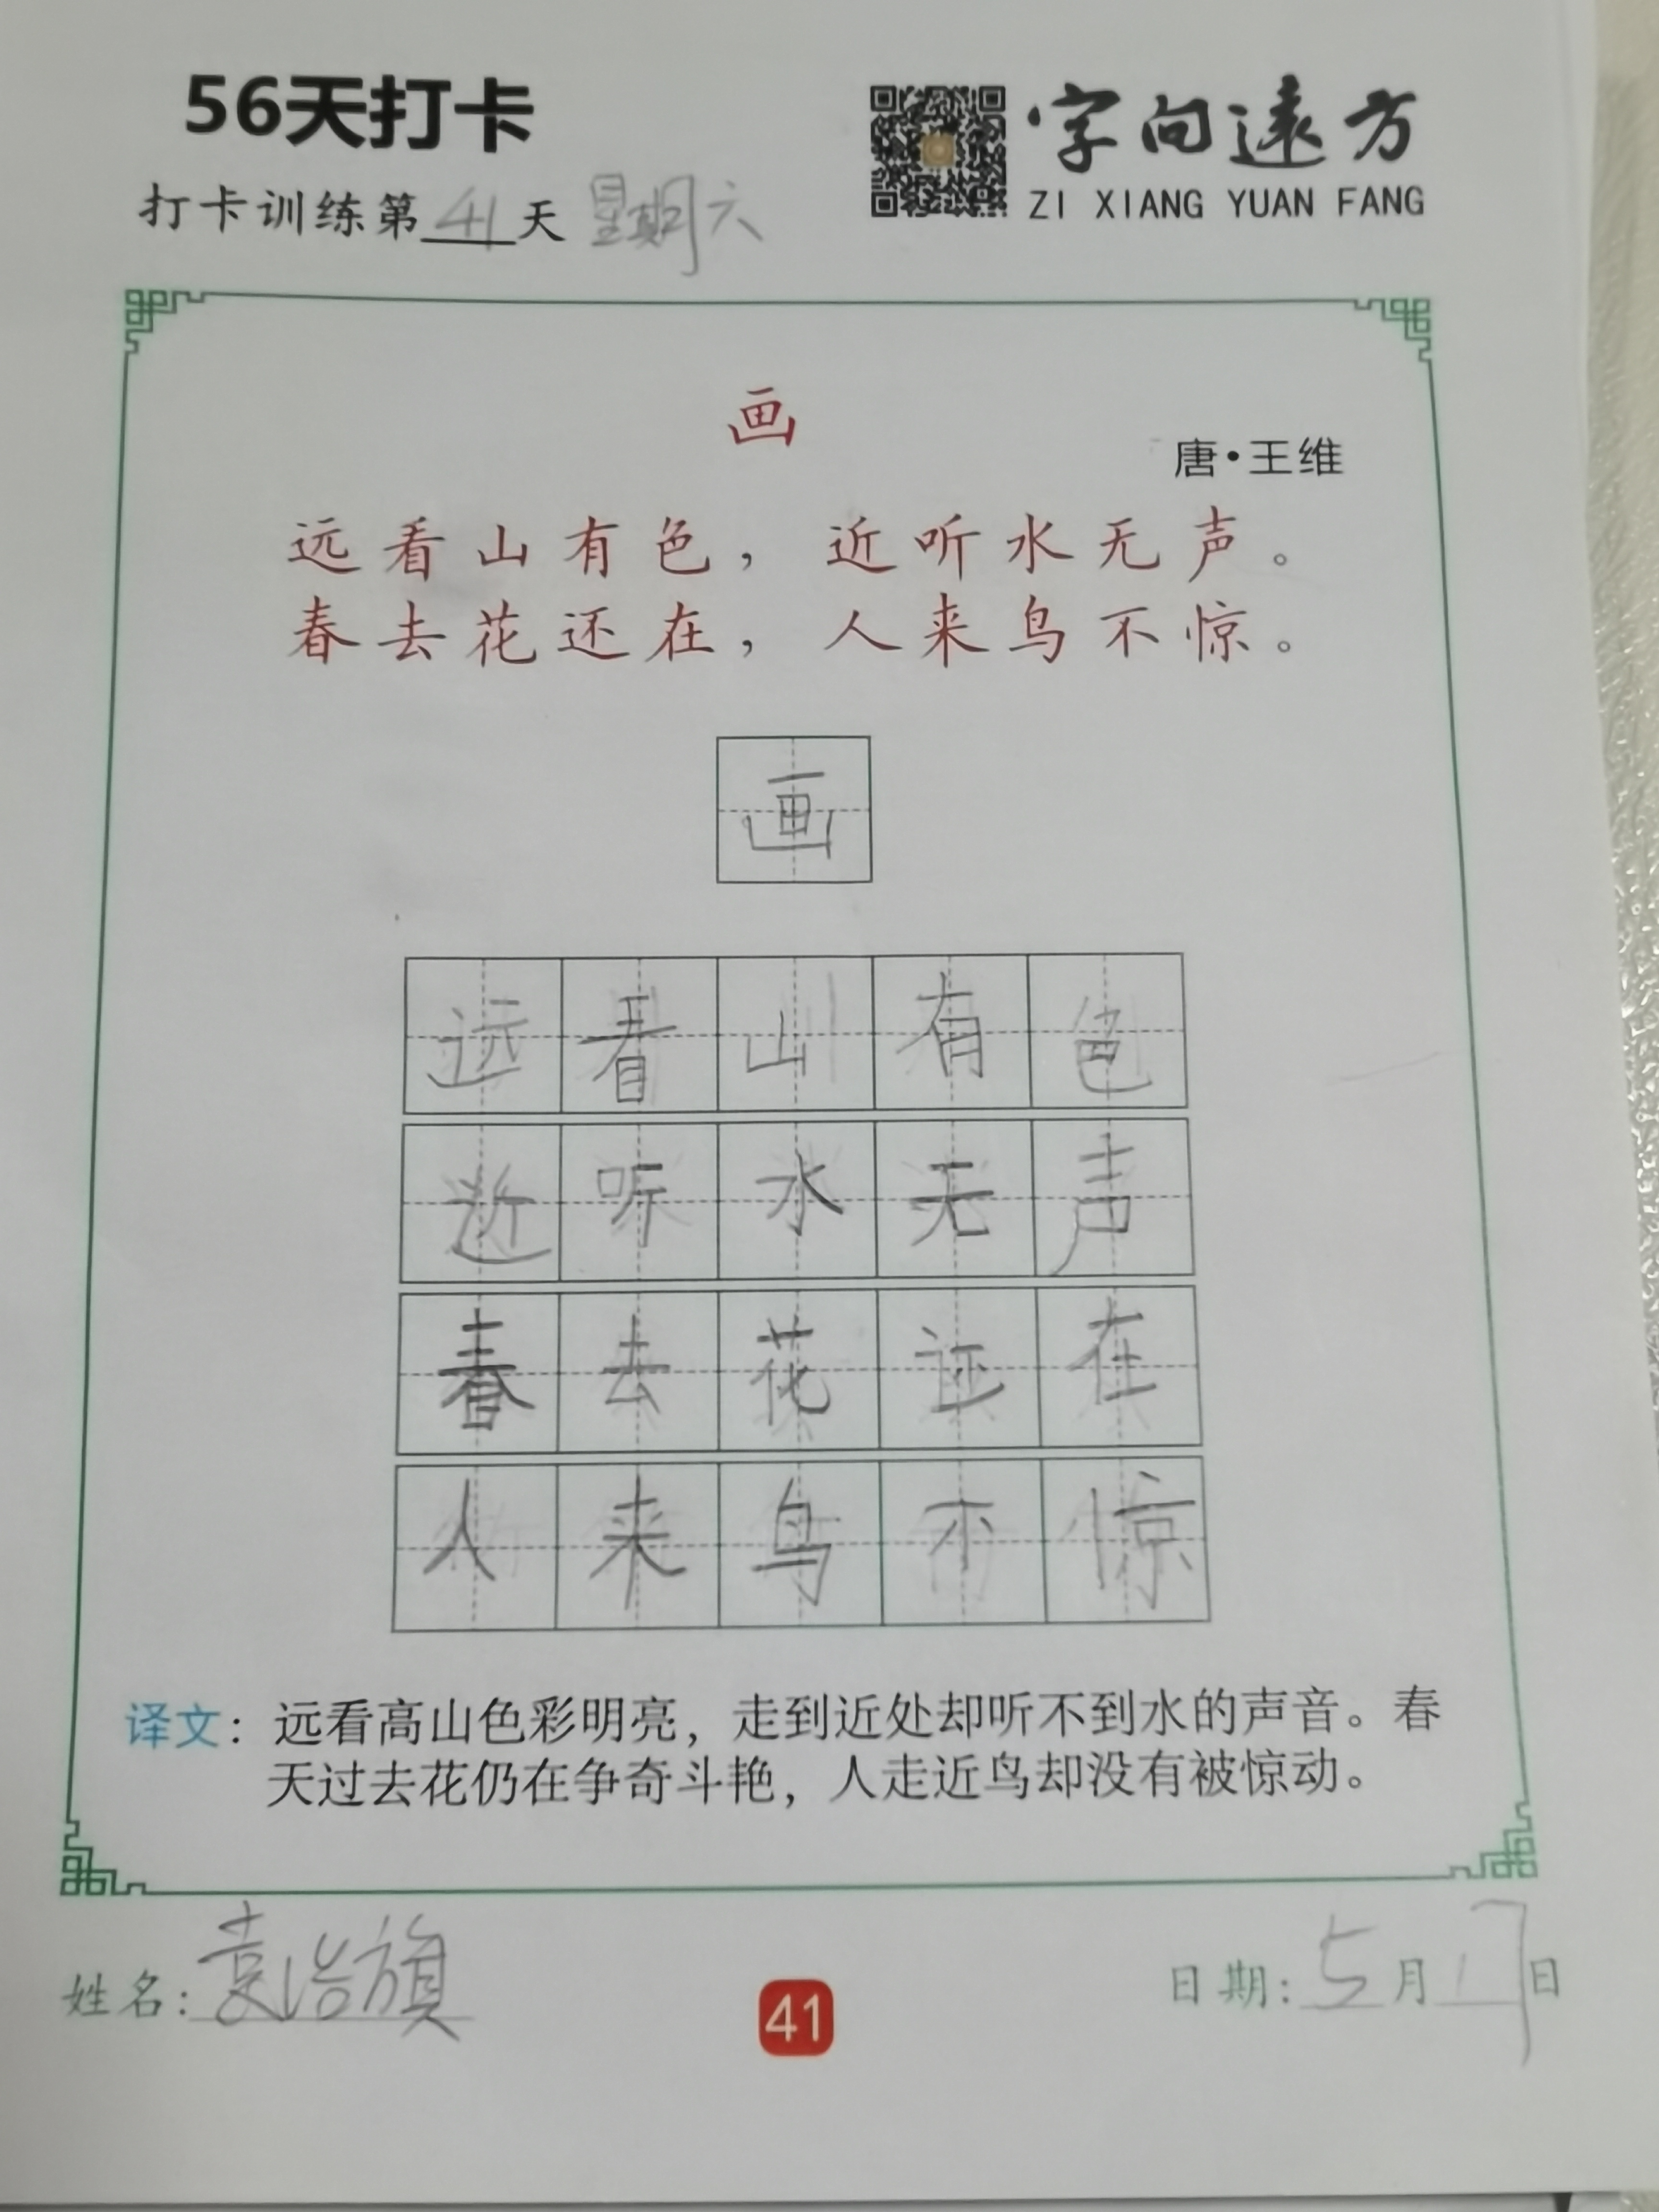 56天打卡
字向遠方
ZI XIANG YUAN FANG
打卡训练第41天 星期六
画
唐·王维
远看山有色，近听水无声。
春去花还在，人来鸟不惊。
画
远看山有色
近听水无声
春去花还在
人来鸟不惊
译文：远看高山色彩明亮，走到近处却听不到水的声音。春
天过去花仍在争奇斗艳，人走近鸟却没有被惊动。
姓名：袁浩旗
41
日期：5月17日